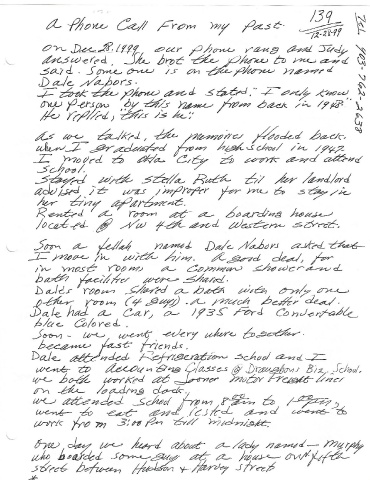 A Phone Call From my Past
139
12-28-99
on Dec 28, 1999, our phone rang and Judy
answered. She brot the phone to me and
said. Some one is on the phone named
Dale Nabors.
I took the phone and stated, "I only know
one person by this name from back in 1948"
He replied, "this is he".
As we talked, the memories flooded back.
when I graduated from high School in 1947
I moved to Okla City to work and attend
School.
Stayed with Stella Ruth til her landlord
advised it was improper for me to stay in
her tiny apartment.
Rented a room at a boarding house
located @ NW 4th and Western street.
Soon a fellah named Dale Nabors asked that
I move in with him. A good deal, for
in most rooms a common shower and
bath facilities were shared.
Dales room shared a bath with only one
other room (4 guys). a much better deal.
Dale had a Car, a 1935 Ford Convertable
blue Colored.
Soon - we went every where together.
became fast friends.
Dale attended Refrigeration school and I
went to Accounting Classes @ Draughons Biz, School.
we both worked at motor Freight lines
on the loading dock.
we attended school from 8 am to
went to eat and rested and went to
work from 3:00 Pm till midnight.
One day we heard about a lady named - Murphy
who boarded some guys at a house on 4th
street between Hudson & Harvey street